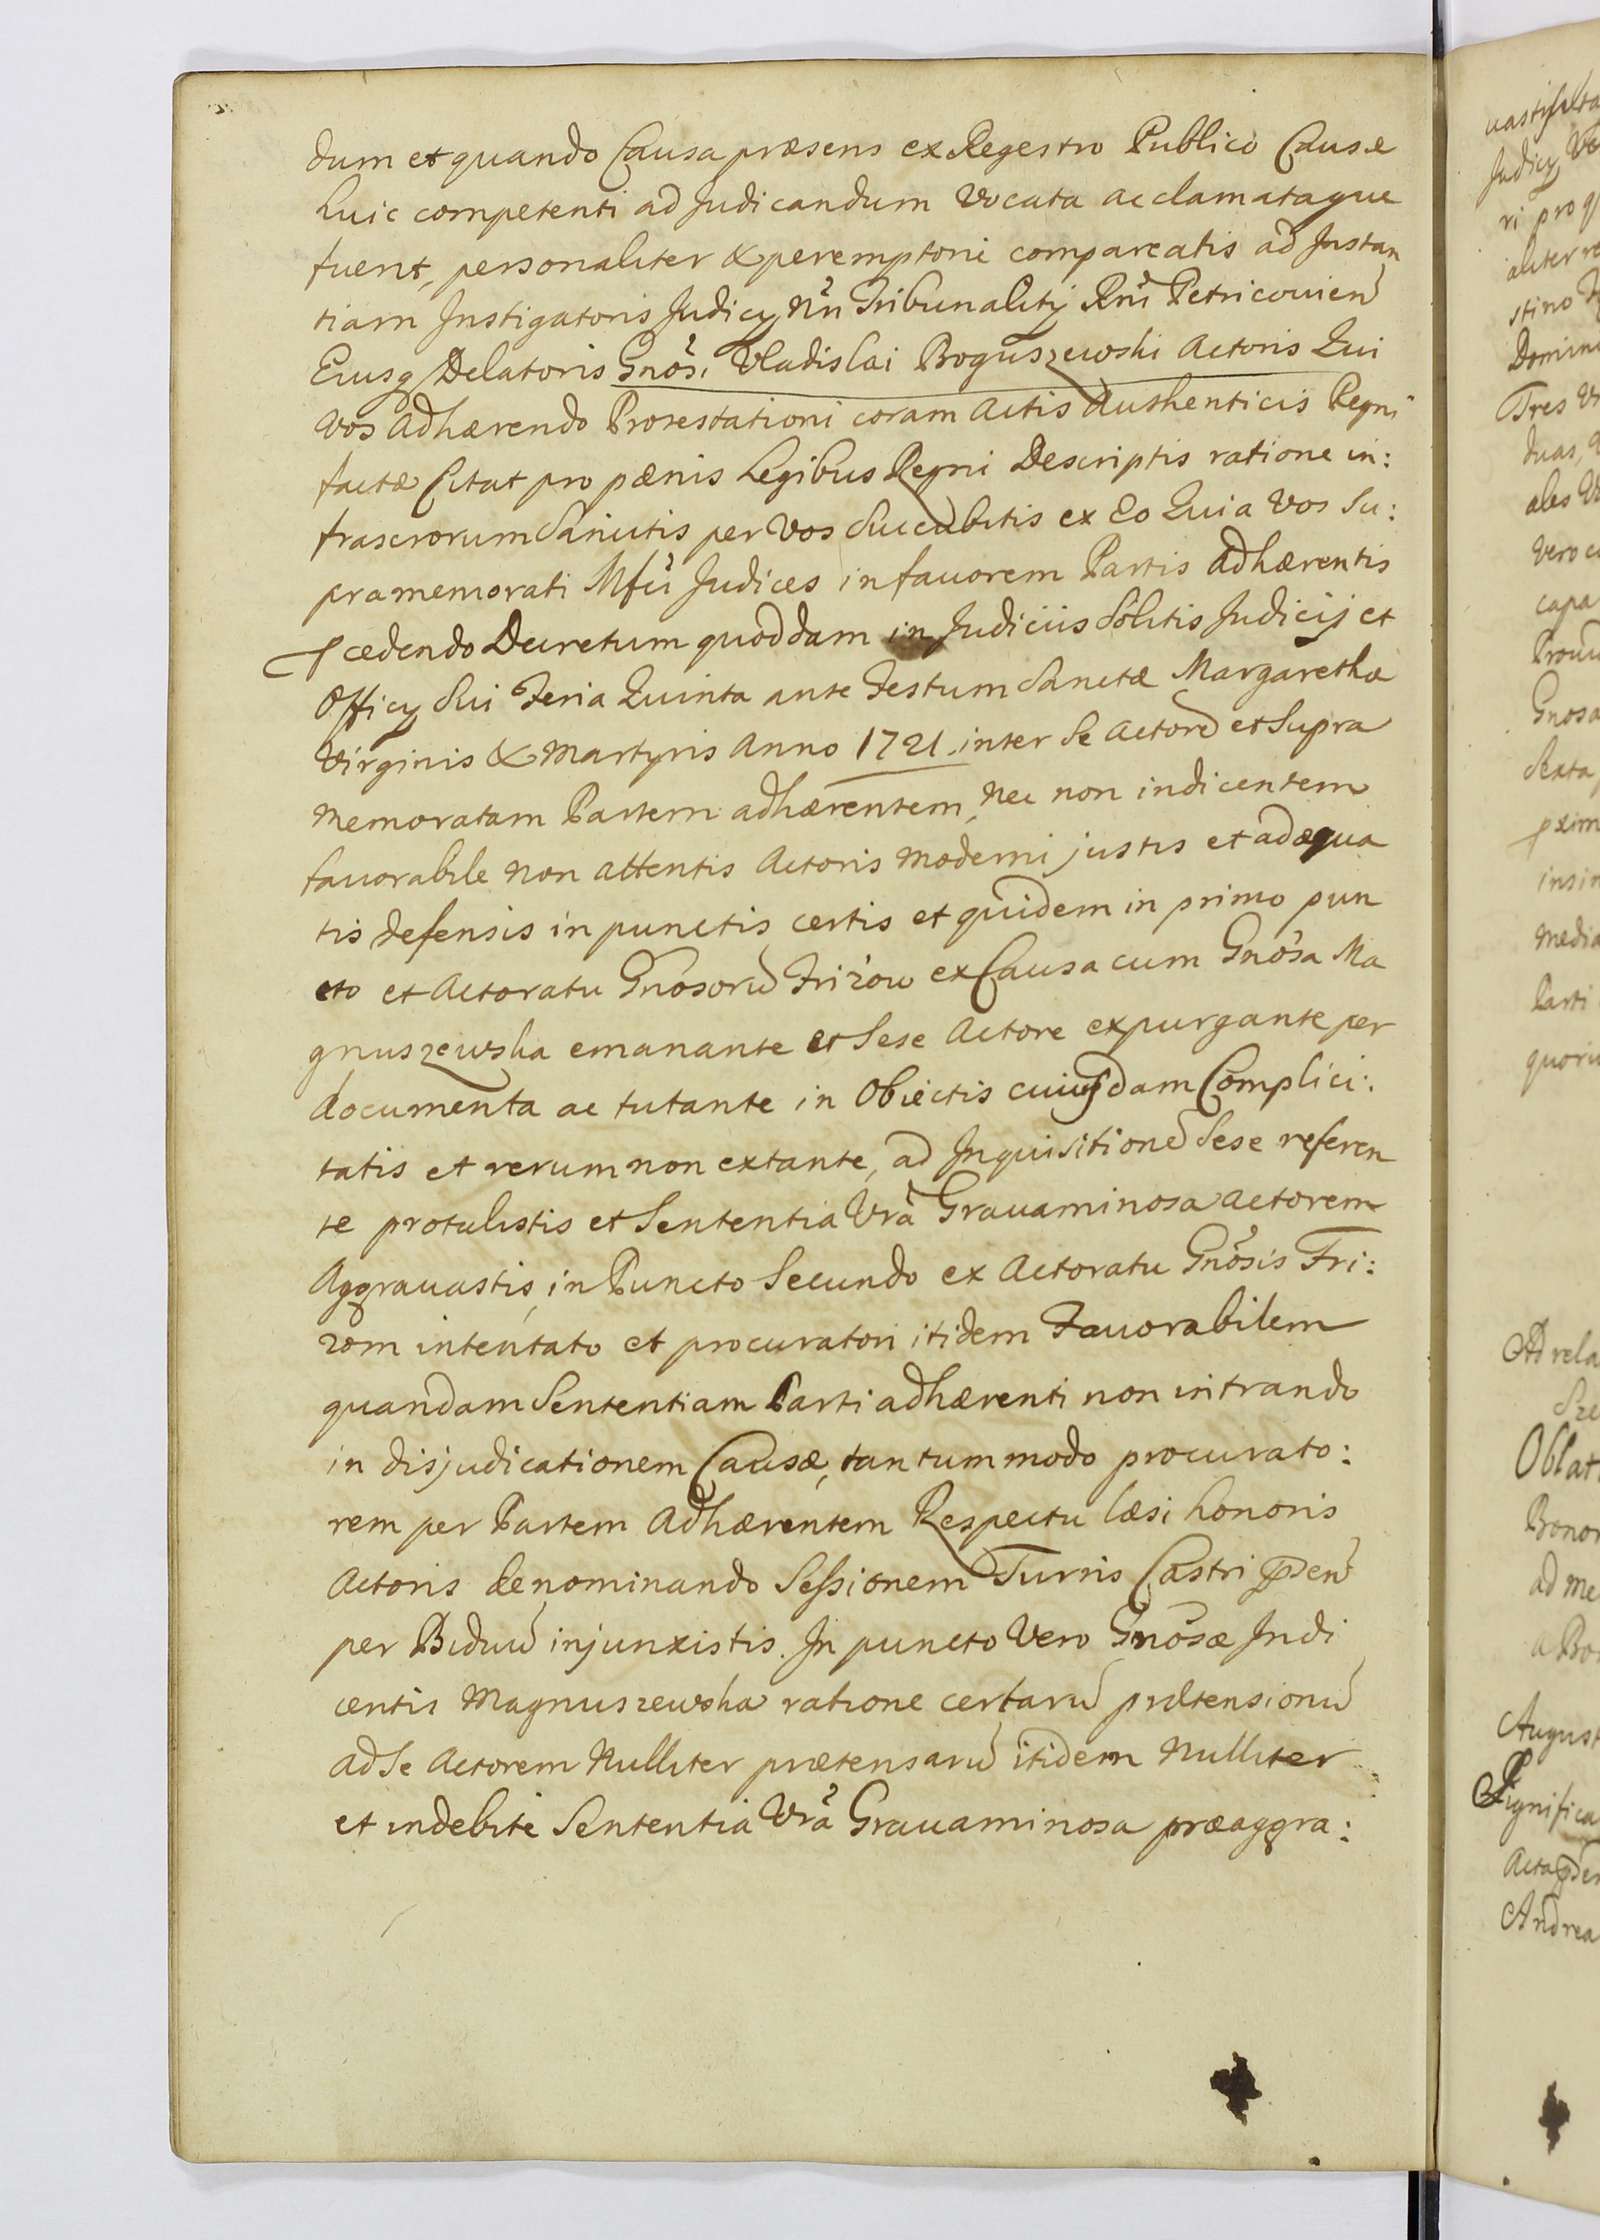 dum et quando Causa præsens ex Regestro Publico Causæ
huic competenti ad Judicandum Vocata acclamataque
fuerit, personaliter & peremptorie compareatis ad Instan
tiam Instigatoris Judicy Nri Tribunalitij Rni Petricouien
Eiusq Delatoris Gnosi Vladislai Boguszewski Actoris Qui
Vos Adhærendo Protestationi coram Actis Authenticis Regni
factæ Citat pro pænis Legibus Regni Descriptis ratione in:
frascrorum Sancitis per Vos Succubitis ex Eo Quia Vos Su:
pramemorati Mfci Judices in fauorem Partis Adhærentis
pcedendo Decretum quoddam in Judiciis Solitis Judicij et
Officy Sui Feria Quinta ante Festum Sanctæ Margarethæ
Virginis & Martyris Anno 1721. inter Se Actorem et Supra
Memoratam Partem adhærentem, Nec non indicentem
fauorabile Non attentis Actoris Moderni justis et adæqua
tis defensis in punctis certis et quidem in primo pun
cto et Actoratu Gnosorum Frizow ex Causa cum Gnosa Ma
gnuszewska emanante et Sese Actore expurgante per
documenta ac tutante in Obiectis cuiusdam Complici:
tatis et rerum non extante, ad Inquisitionem Sese referen
te protulistis et Sententia Vra Grauaminosa Actorem
Aggrauastis, in Puncto Secundo ex Actoratu Gnosis Fri:
zom intentato et procuratori itidem Fauorabilem
quandam Sententiam Parti adhærenti non intrando
in disjudicationem Causæ, tantummodo procurato:
rem per Partem Adhærentem Respectu læsi honoris
Actoris denominando Sessionem Turris Castri pden
per Biduum injunxistis. In puncto Vero Gnosæ Indi
centis Magnuszewska ratione certarum prætensionum
ad Se Actorem Nulliter prætensarum itidem Nulliter
et indebite Sententia Vra Grauaminosa præaggra: